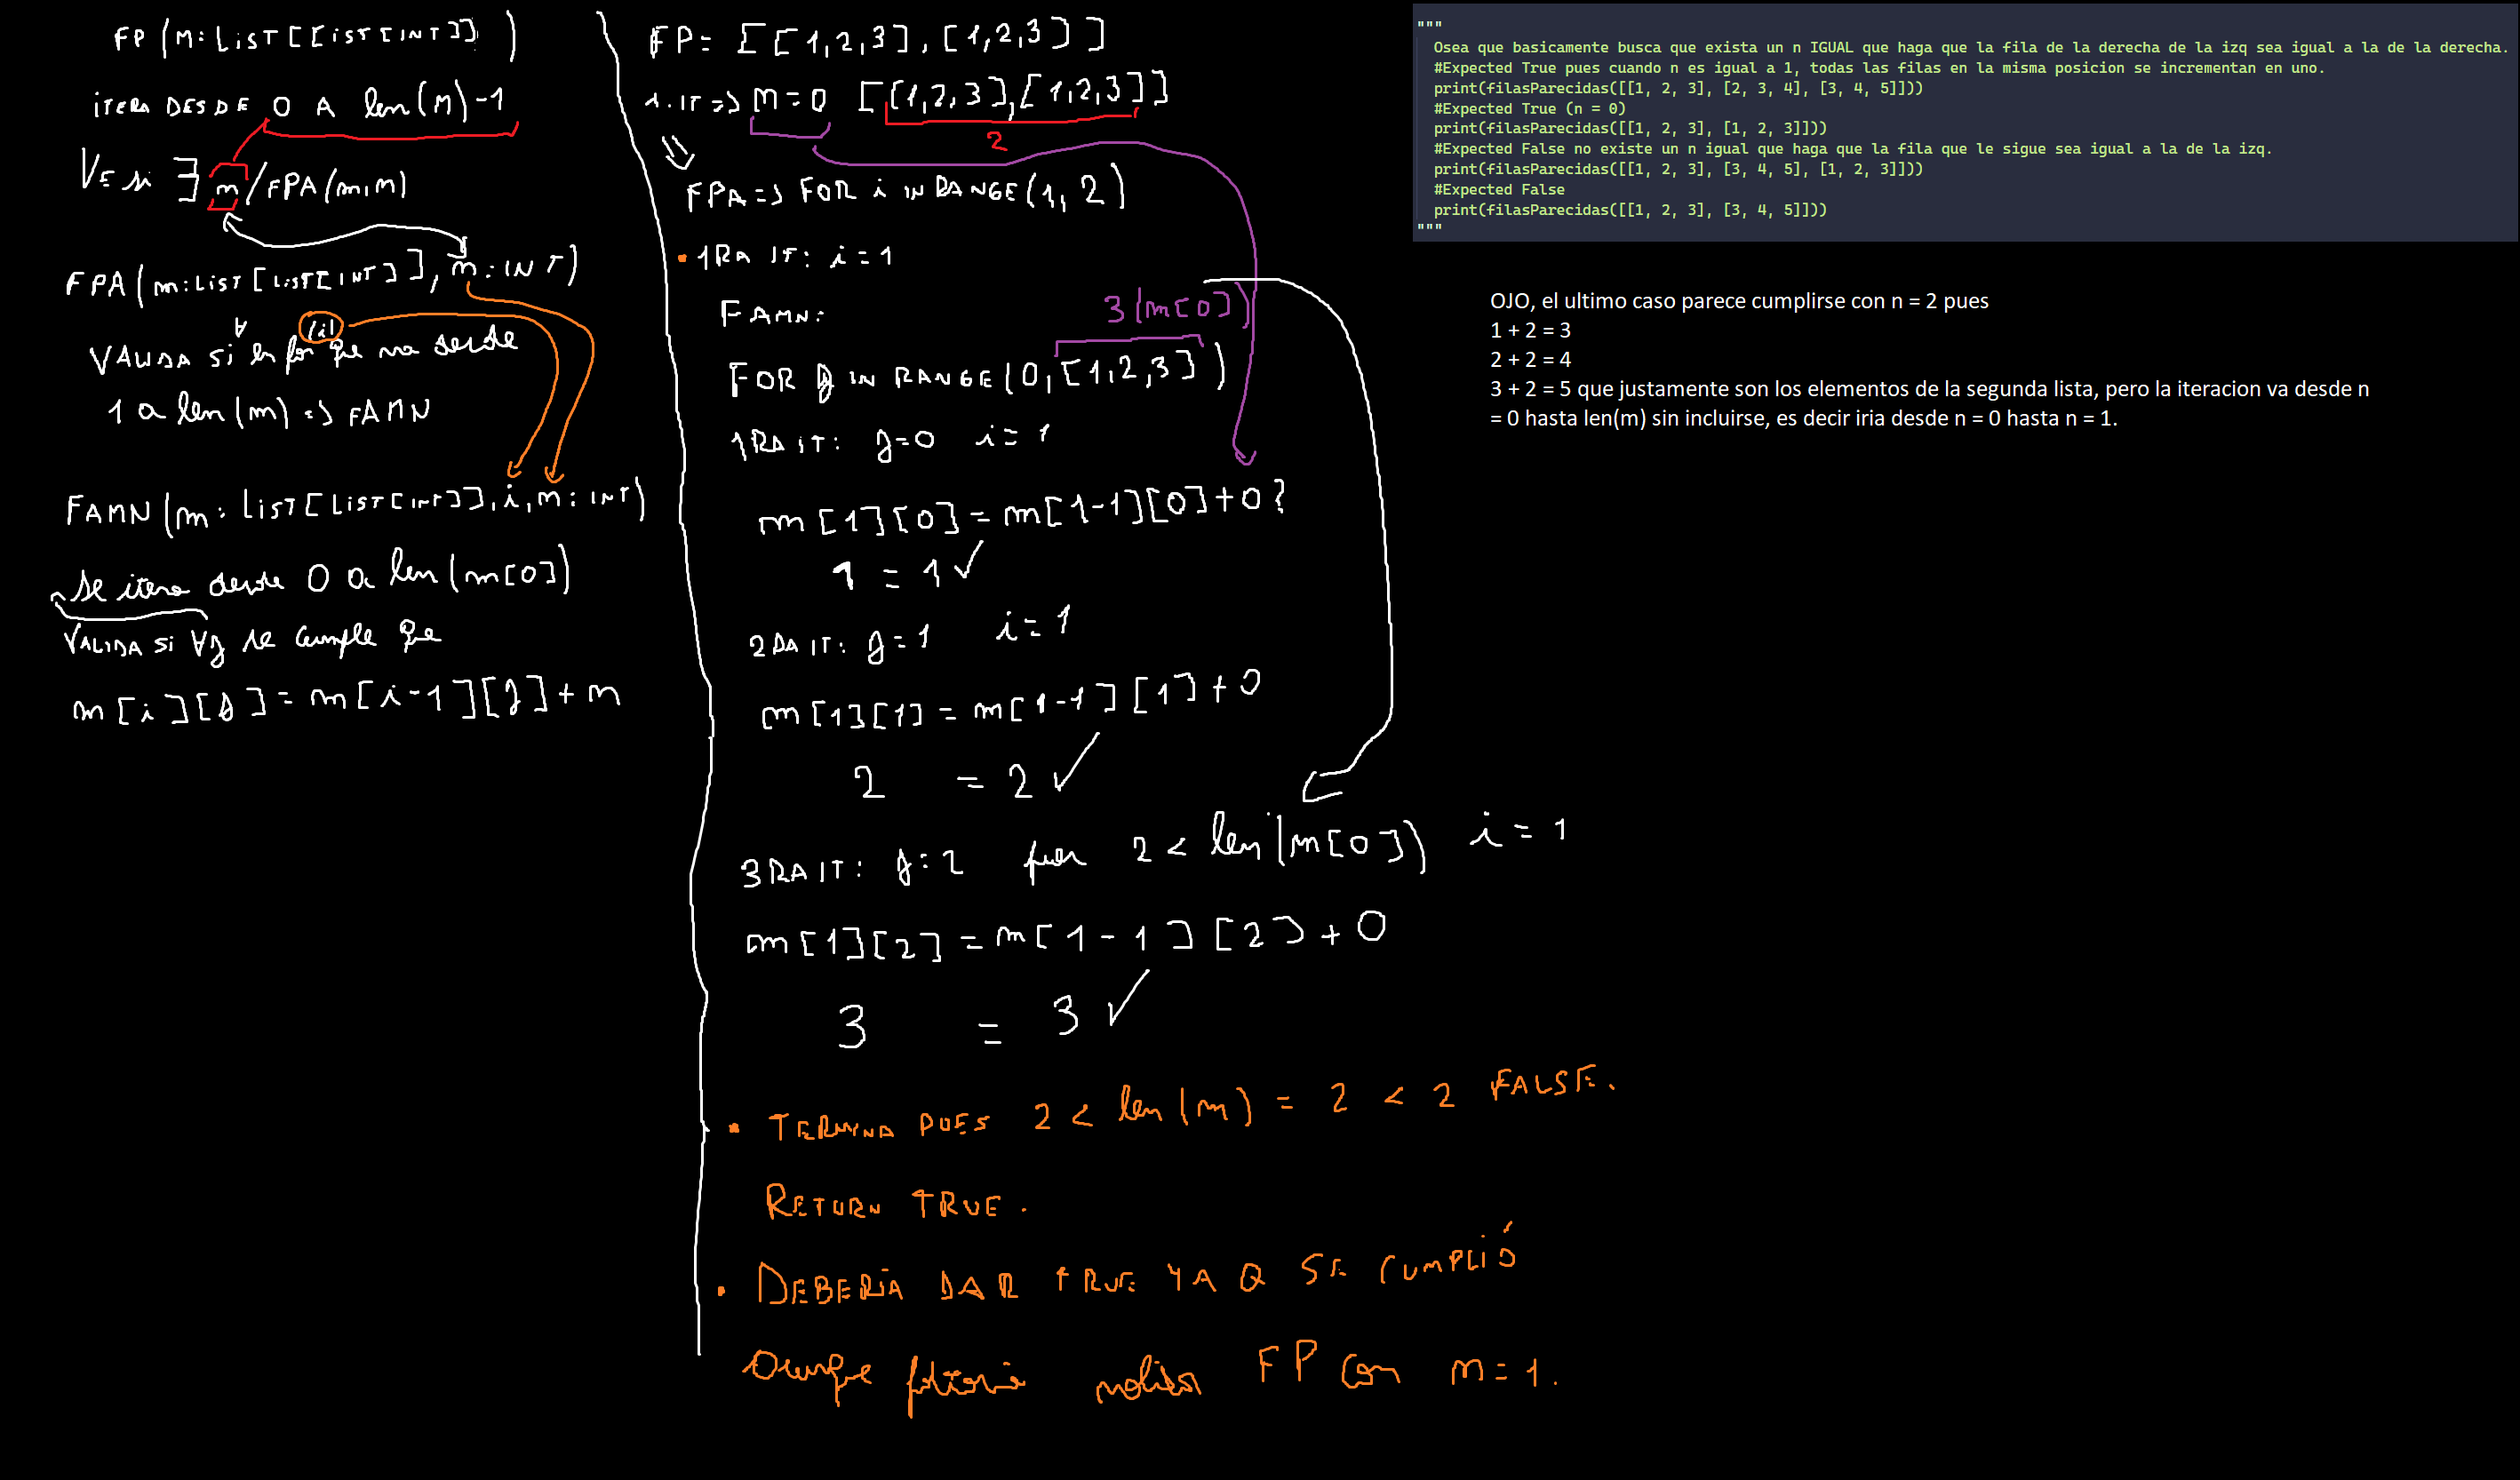 FP(M:LIST[LIST[INT]])
ITERA DESDE 0 A len(M)-1
VE si ∃ n/FPA(m,n)
FPA(m:LIST[LIST[INT]], n:INT)
∀ (i)
VALIDA SI en for que va desde
1 a len(m) => FAMN
FAMN(m: LIST[LIST[INT]], i, n: INT)
Se itera desde 0 a len(m[0])
VALIDA SI ∀j se cumple que
m[i][j] = m[i-1][j] + n
FP= [[1,2,3],[1,2,3]]
1.IT => n=0 [[1,2,3],[1,2,3]]
2
FPA => FOR i IN RANGE(1,2)
• 1RA IT: i=1
FAMN:
3(m[0])
FOR j IN RANGE(0,[1,2,3])
1RA IT: j=0 i=1
m[1][0] = m[1-1][0]+0?
1 = 1 ✓
2DA IT: j=1 i=1
m[1][1] = m[1-1][1]+0
2 = 2 ✓
3RA IT: j=2 pues 2 < len(m[0]) i=1
m[1][2] = m[1-1][2]+0
3 = 3 ✓
• TERMINA PUES 2 < len(m) = 2 < 2 FALSE.
RETURN TRUE.
• DEBERÍA DAR TRUE YA Q SE CUMPLIÓ
aunque faltaria validar FP con n=1.
"""
Osea que basicamente busca que exista un n IGUAL que haga que la fila de la derecha de la izq sea igual a la de la derecha.
#Expected True pues cuando n es igual a 1, todas las filas en la misma posicion se incrementan en uno.
print(filasParecidas([[1, 2, 3], [2, 3, 4], [3, 4, 5]]))
#Expected True (n = 0)
print(filasParecidas([[1, 2, 3], [1, 2, 3]]))
#Expected False no existe un n igual que haga que la fila que le sigue sea igual a la de la izq.
print(filasParecidas([[1, 2, 3], [3, 4, 5], [1, 2, 3]]))
#Expected False
print(filasParecidas([[1, 2, 3], [3, 4, 5]]))
"""
OJO, el ultimo caso parece cumplirse con n = 2 pues
1 + 2 = 3
2 + 2 = 4
3 + 2 = 5 que justamente son los elementos de la segunda lista, pero la iteracion va desde n
= 0 hasta len(m) sin incluirse, es decir iria desde n = 0 hasta n = 1.